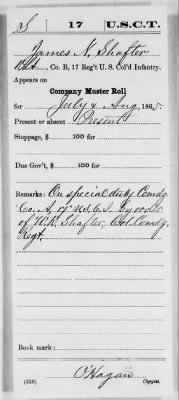 S 17 U.S.C.T.
James N. Shafter
Capt., Co. B, 17 Reg't U. S. Col'd Infantry.
Appears on
Company Muster Roll
for July & Aug, 1865.
Present or absent Present
Stoppage, $ 100 for
Due Gov't, $ 100 for
Remarks: On special duty Comdg
Co. A, 17 U.S.C.I. By order
of W.R. Shafter, Col. Comdg.
Regt.
Book mark:
O'Hagan
(358) Copyist.